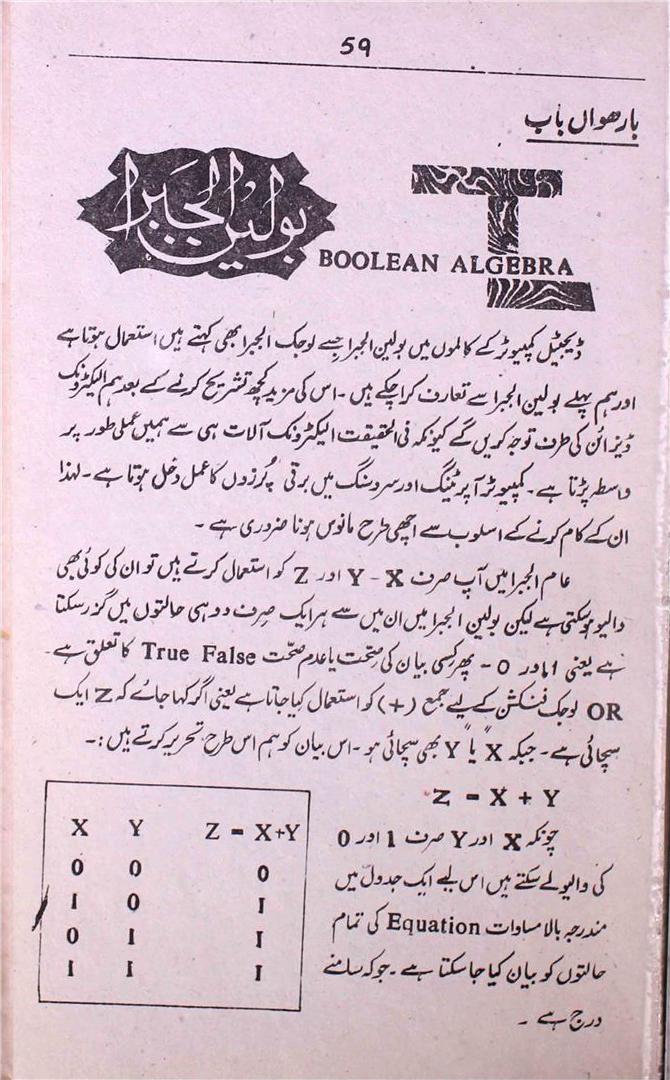 59
بارھواں باب
بولین الجبرا
BOOLEAN ALGEBRA
ڈیجیٹل کمپیوٹر کے کالموں میں بولین الجبرا جسے لوجک الجبرا بھی کہتے ہیں استعمال ہوتا ہے
اور ہم پہلے بولین الجبرا سے تعارف کرا چکے ہیں ۔ اس کی مزید کچھ تشریح کرنے کے بعد ہم الیکٹرونک
ڈیزائن کی طرف توجہ کریں گے کیونکہ فی الحقیقت الیکٹرونک آلات ہی سے ہمیں عملی طور پر
واسطہ پڑتا ہے ۔ کمپیوٹر آپرٹینگ اور سروسنگ میں برقی پُرزوں کا عمل دخل ہوتا ہے ۔ لہذا
ان کے کام کرنے کے اسلوب سے اچھی طرح مانوس ہونا ضروری ہے ۔
عام الجبرا میں آپ صرف Y - X اور Z کو استعمال کرتے ہیں تو ان کی کوئی بھی
والیو ہو سکتی ہے لیکن بولین الجبرا میں ان میں سے ہر ایک صرف دو ہی حالتوں میں گزر سکتا
ہے یعنی 1 اور 0 - پھر کسی بیان کی صحت یا عدم صحّت True False کا تعلق ہے ۔
OR لوجک فنکشن کے لیے جمع (+) کو استعمال کیا جاتا ہے یعنی اگر کہا جائے کہ Z ایک
سچائی ہے ۔ جبکہ X "یا" Y بھی سچائی ہو ۔ اس بیان کو ہم اس طرح تحریر کرتے ہیں :۔
Z = X + Y
چونکہ X اور Y صرف 1 اور 0
کی والیو لے سکتے ہیں اس لیے ایک جدول میں
مندرجہ بالا مساوات Equation کی تمام
حالتوں کو بیان کیا جا سکتا ہے ۔ جو کہ سامنے
درج ہے ۔
X Y Z = X+Y
0 0 0
1 0 1
0 1 1
1 1 1